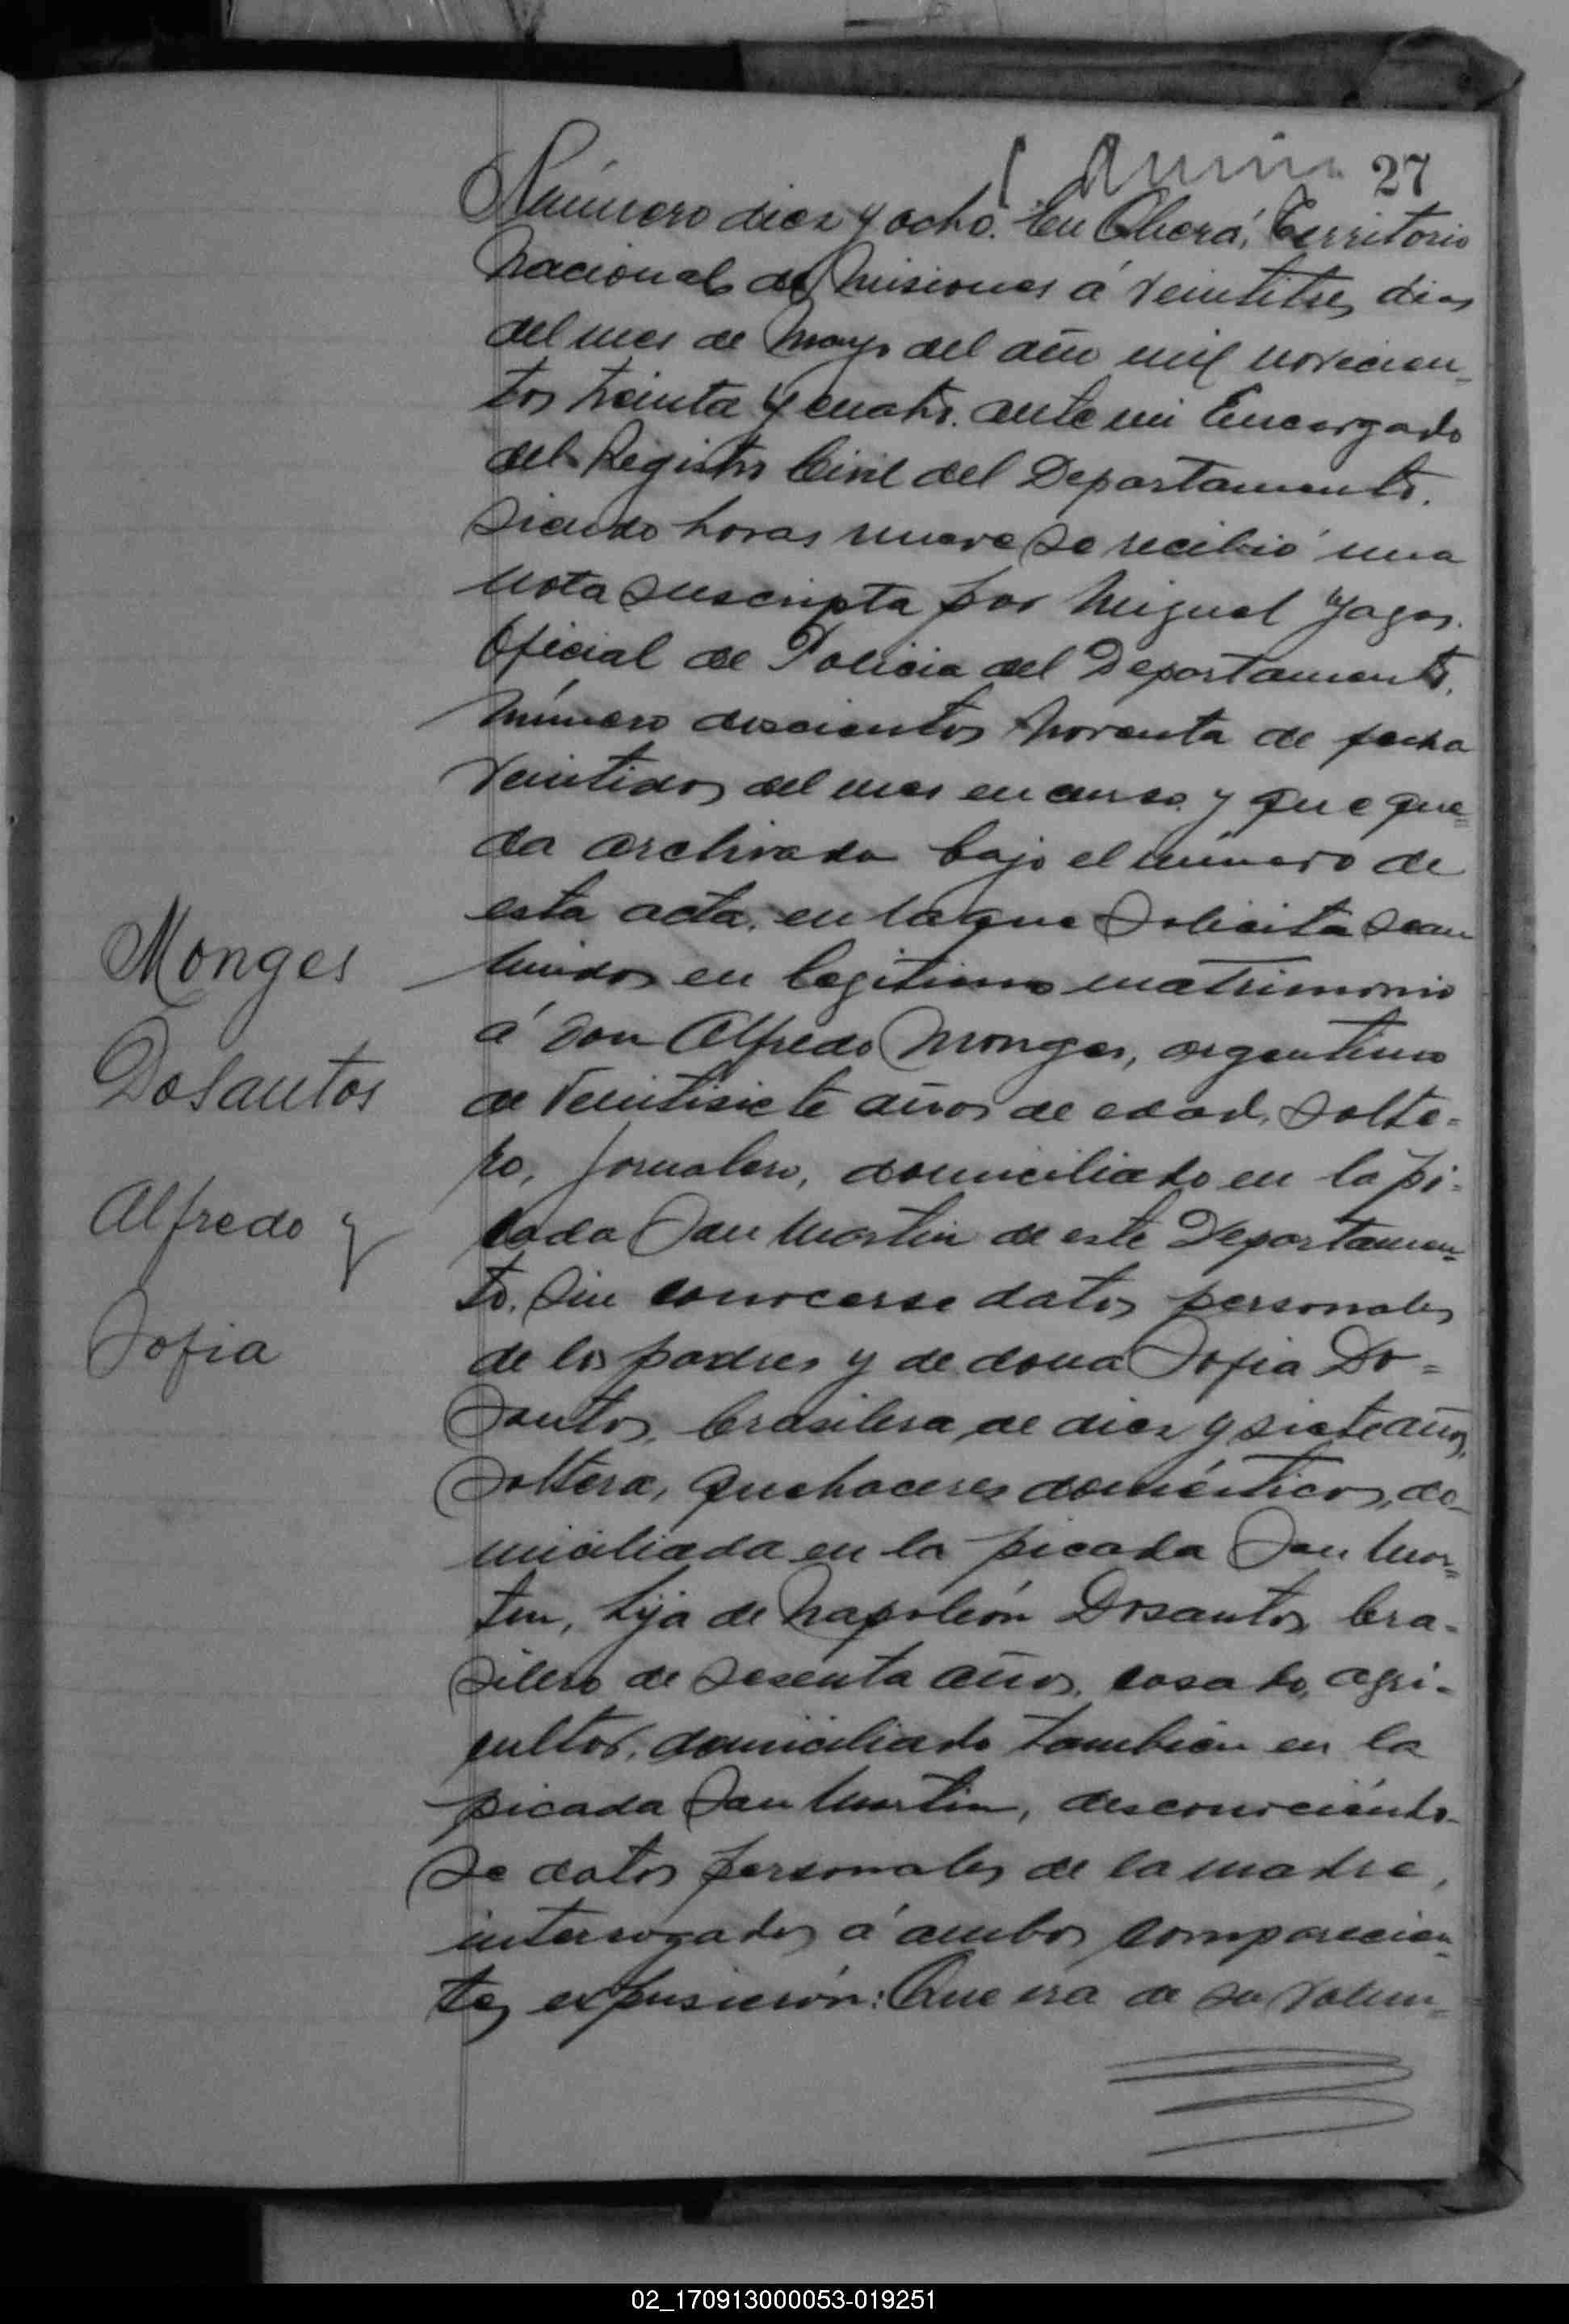 27
Número diez y ocho. En Oberá, Territorio
Nacional de Misiones á veintitres dias
del mes de Mayo del año mil novecien-
tos treinta y cuatro. ante mi Encargado
del Registro Civil del Departamento.
Siendo horas nueve se recibió una
nota suscripta por Miguel
Oficial de Policia del Departamento,
número doscientos noventa de fecha
veintidos del mes en curso y que que=
da archivada bajo el número de
esta acta, en la que solicita sean
unidos en legitimo matrimonio
á don Alfredo Monges, argentino
de veintisiete años de edad, solte=
ro, jornalero, domiciliado en la pi=
cada San Martin de este Departamen=
to, sin conocerse datos personales
de los padres y de doña Sofia Do=
Santos, brasilera, de diez y siete años,
soltera, quehaceres domésticos, do-
miciliada en la picada San Mar=
tin, hija de Napoleón Dosantos, bra-
silero de sesenta años, casado, agri-
cultor, domiciliado tambien en la
picada San Martin, desconociéndo-
se datos personales de la madre,
interrogados á ambos comparecien-
tes expusieron: Que era de su volun=
Monges
DoSantos
Alfredo y
Sofia
02_170913000053-019251